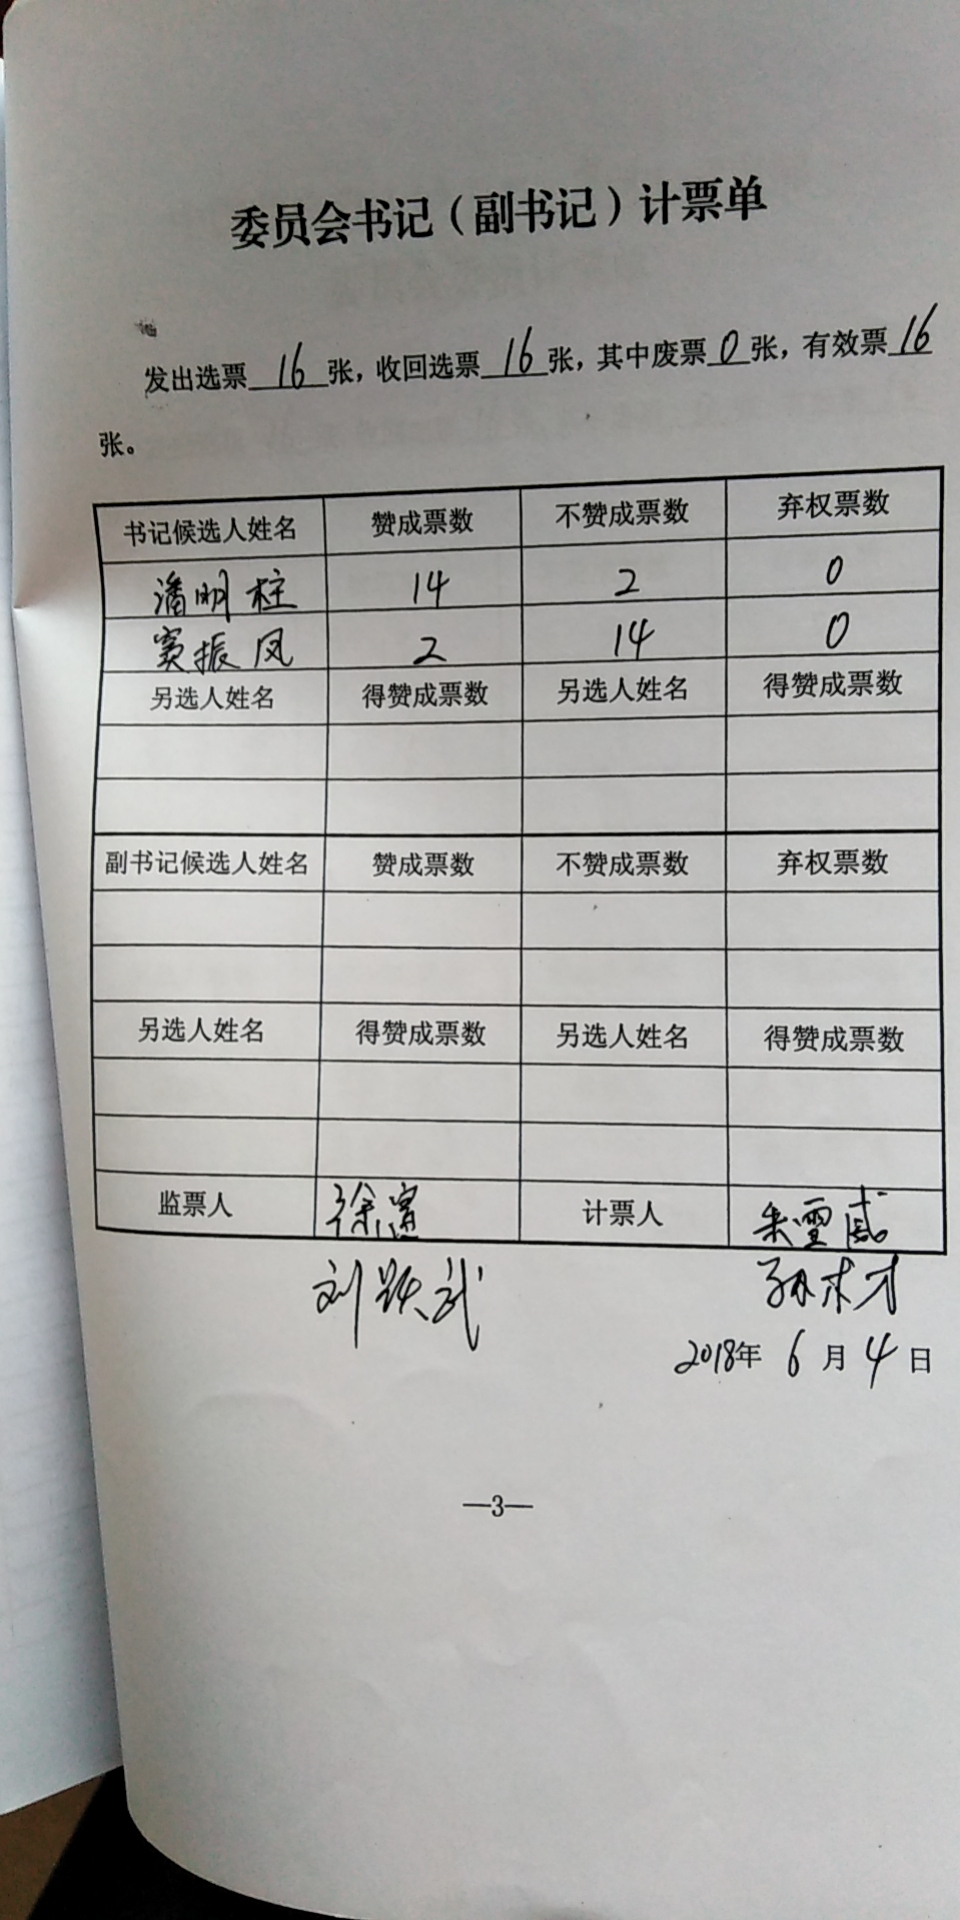 委员会书记（副书记）计票单
发出选票 16 张，收回选票 16 张，其中废票 0 张，有效票 16
张。
书记候选人姓名 赞成票数 不赞成票数 弃权票数
潘明柱 14 2 0
窦振凤 2 14 0
另选人姓名 得赞成票数 另选人姓名 得赞成票数
副书记候选人姓名 赞成票数 不赞成票数 弃权票数
另选人姓名 得赞成票数 另选人姓名 得赞成票数
监票人 徐 计票人 朱雪威
刘跃武 孙术才
2018年 6 月 4 日
—3—